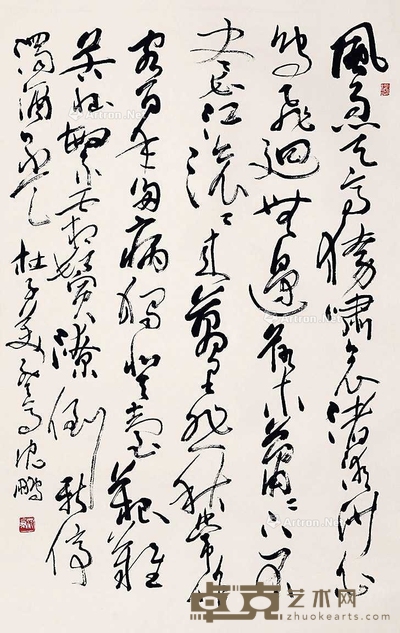 風急天高猿嘯哀渚清沙白
鳥飛迴無邊落木蕭々下不
尽长江滚々来萬里悲秋常作
客百年多病獨登臺艱難
苦恨繁霜鬢潦倒新停
濁酒杯 杜子美登高 沈鵬
Artron.Net
卓克艺术网
http://www.zhuokearts.com